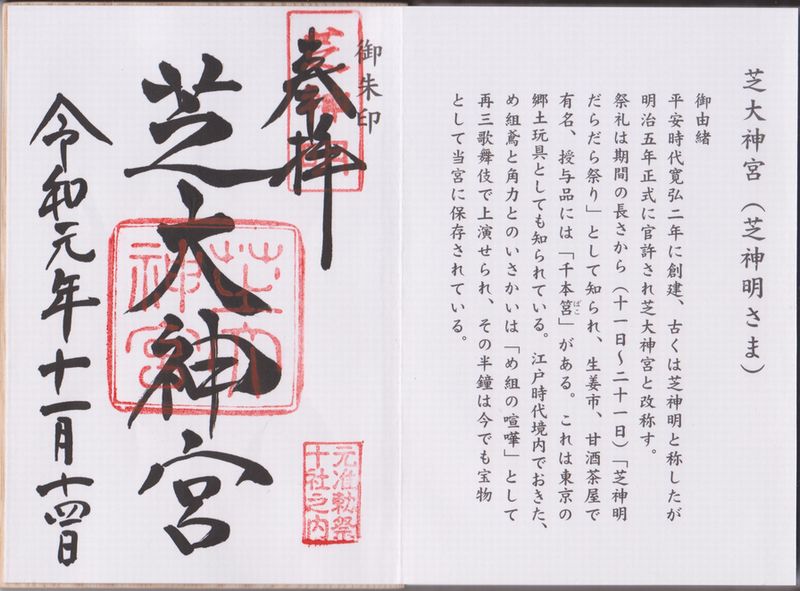 芝大神宮(芝神明さま)
御由緒
平安時代寛弘二年に創建、古くは芝神明と称したが
明治五年正式に官許され芝大神宮と改称す。
祭礼は期間の長さから(十一日〜二十一日)「芝神明
だらだら祭り」として知られ、生姜市、甘酒茶屋で
有名、授与品には「千本筥」がある。これは東京の
ばこ
郷土玩具としても知られている。江戸時代境内でおきた、
め組鳶と角力とのいさかいは「め組の喧嘩」として
再三歌舞伎で上演せられ、その半鐘は今でも宝物
として当宮に保存されている。
御朱印
奉拝
芝神明
芝大神宮
芝大神宮
元准勅祭
十社之内
令和元年十一月十四日